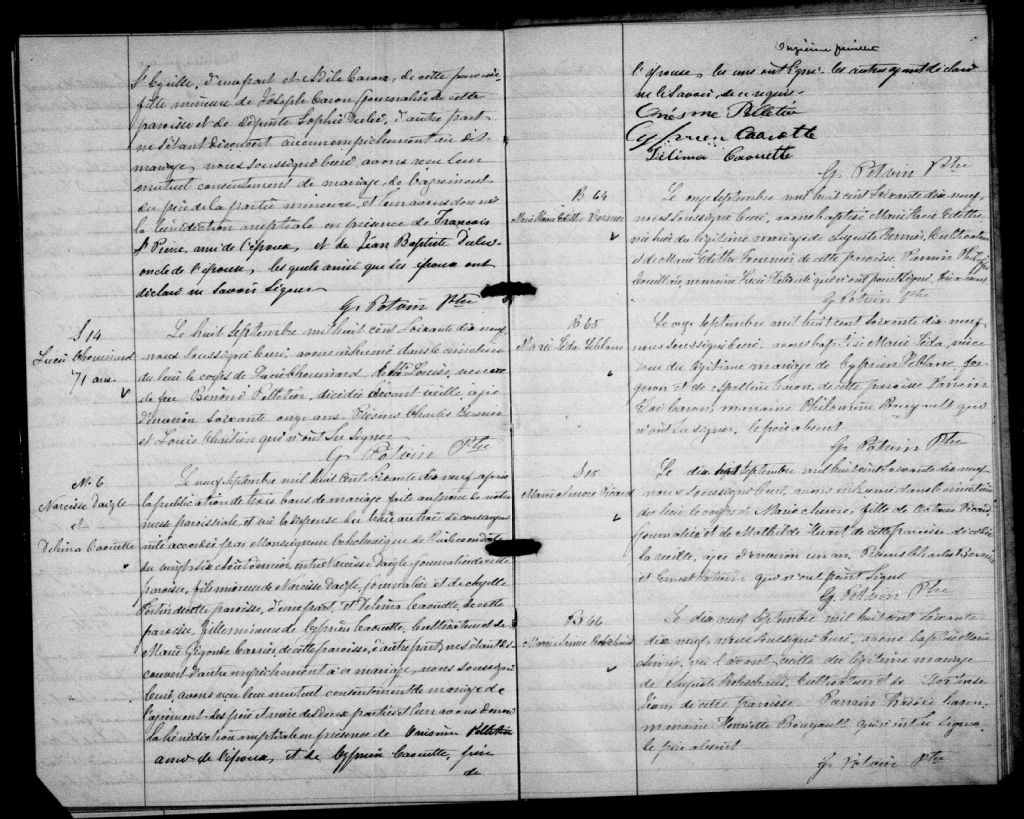 St Cyrille, d'une part et Adèle Caron, de cette paroisse
fille mineure de Joseph Caron journalier de cette
paroisse et de défunte Sophie Dubé, d'autre part
ne s'étant découvert aucun empêchement au dit
mariage, nous soussigné curé, avons reçu leur
mutuel consentement de mariage de l'agrément
du père de la partie mineure, et leur avons donné
la bénédiction nuptiale en présence de François
St Pierre, ami de l'époux, et de Jean Baptiste Dubé
oncle de l'épouse, lesquels ainsi que les époux ont
déclaré ne savoir signer
G. Potvin Ptre
S 14
Lucie Chouinard
71 ans.
Le huit Septembre mil huit cent soixante dix neuf
nous soussigné curé, avons inhumé dans le cimetière
du lieu le corps de Lucie Chouinard Louis, veuve
de feu Benoni Pelletier, décédée avant veille, âgée
d'environ soixante onze ans. Présens Charles Bernier
et Louis qui n'ont su signer
G. Potvin Ptre
No 6
Narcisse Daigle
et
Delima Caouette
Le neuf Septembre mil huit cent soixante dix neuf après
la publication de trois bans de mariage faite au prône de notre
messe paroissiale, et vu la dispense du trois au trois de consangui-
nité accordée par Monseigneur l'Archevêque de Québec en date
du vingt six Août dernier, entre Narcisse Daigle journalier de cette
paroisse, fils mineur de Narcisse Daigle, journalier et de
de cette paroisse, d'une part, et Delima Caouette, de cette
paroisse, fille mineure de Cyprien Caouette, Cultivateur et de
Marie Carrier, de cette paroisse, d'autre part, ne s'étant dé-
couvert d'autre empêchement à ce mariage, nous soussigné
Curé, avons reçu leur mutuel consentement de mariage de
l'agrément des père et mère des deux parties et leur avons donné
la bénédiction nuptiale en présence de Onésime Pelletier
ami de l'époux, et de Cyprien Caouette, père
de
Onzième feuillet
l'épouse, les uns ont signé les autres ayant déclaré
ne le savoir, de ce requis.
Onesme Pelletié
Cyprien Caouette
Délima Caouette
G. Potvin Ptre
B 64
Marie Edithe Bernier
Le onze Septembre mil huit cent soixante dix neuf,
nous soussigné Curé, avons baptisé Marie Edithe
née hier du légitime mariage de Auguste Bernier, Cultivateur
et de Marie Edithe Fournier de cette paroisse Parrain
marraine qui n'ont point signé.
G. Potvin Ptre
B 65
Marie Leda Leblanc
Le onze Septembre mil huit cent soixante dix neuf
nous soussigné Curé, avons baptisé Marie Léda, née
du légitime mariage de Cyprien Leblanc for-
geron et de Caron, de cette paroisse Parrain
Caron, marraine Philomène Bourgault qui
n'ont su signer, le père absent
G. Potvin Ptre
S 15
Marie Aurore Picard
Le dix sept Septembre mil huit cent soixante dix neuf
nous soussigné Curé, avons inhumé dans le cimetière
du lieu le corps de Marie Aurore, fille de Picard
journalier et de Mathilde de cette paroisse décédée
la veille, âgée d'environ un an. Présens Charles Bernier
et qui n'ont point signé
G. Potvin Ptre
B 66
Marie Aimée Robichaud
Le dix neuf Septembre mil huit cent soixante
dix neuf, nous soussigné Curé, avons baptisé Marie
Aimée, née l'avant veille du légitime mariage
de Auguste Robichaud, Cultivateur et de
Jean, de cette paroisse Parrain Caron,
marraine Henriette Bourgault qui n'ont su signer
le père absent
G. Potvin Ptre